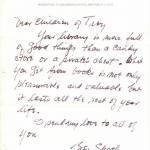 Dear Children of Troy,
Your library is more full
of good things than a candy
store or a pirate's chest. What
you get from books is not only
pleasurable and valuable but
it lasts all the rest of your
life.
I send my love to all of
you
Ben Shahn